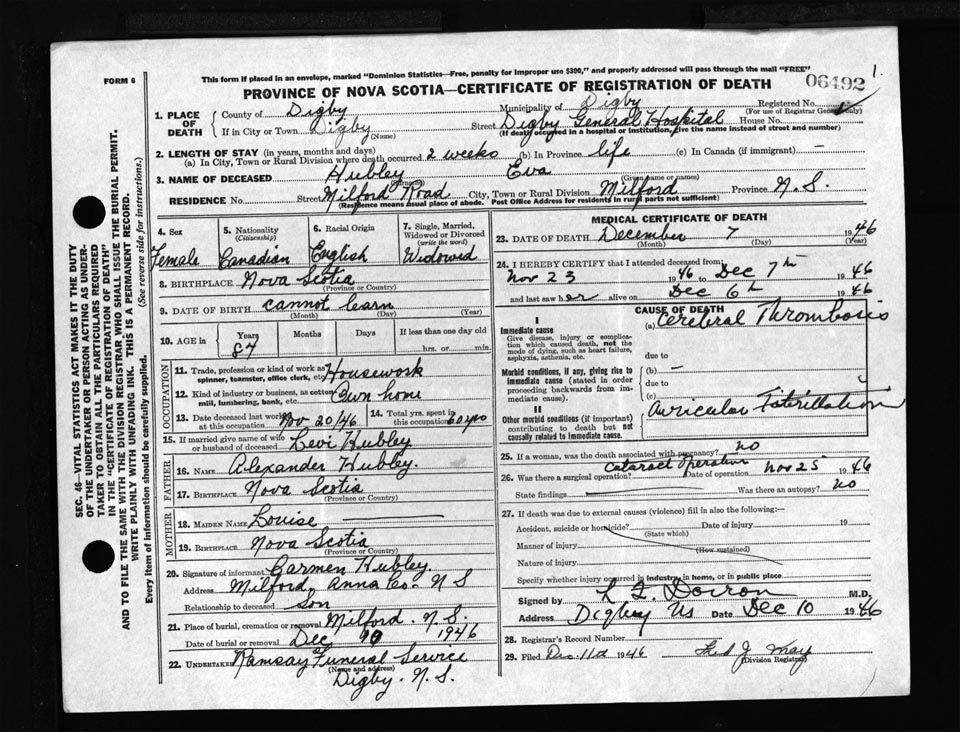 FORM 6
This form if placed in an envelope, marked "Dominion Statistics—Free, penalty for improper use $300," and properly addressed will pass through the mail "FREE"
06492 1.
PROVINCE OF NOVA SCOTIA—CERTIFICATE OF REGISTRATION OF DEATH
1. PLACE OF DEATH
County of Digby Municipality of Digby Registered No.
(For use of Registrar General only)
If in City or Town Digby Street Digby General Hospital House No.
(Name) (If death occurred in a hospital or institution, give the name instead of street and number)
2. LENGTH OF STAY (in years, months and days)
(a) In City, Town or Rural Division where death occurred 2 weeks (b) In Province life (c) In Canada (if immigrant) —
3. NAME OF DECEASED Hubley Eva
(Given name or names)
RESIDENCE No. Street Milford Road City, Town or Rural Division Milford Province N.S.
(Residence means usual place of abode. Post Office Address for residents in rural parts not sufficient)
4. Sex Female
5. Nationality (Citizenship) Canadian
6. Racial Origin English
7. Single, Married, Widowed or Divorced (write the word) Widowed
8. BIRTHPLACE Nova Scotia
(Province or Country)
9. DATE OF BIRTH cannot learn
(Month) (Day) (Year)
10. AGE in Years Months Days If less than one day old
87 hrs. or min.
OCCUPATION
11. Trade, profession or kind of work as spinner, teamster, office clerk, etc. Housework
12. Kind of industry or business, as cotton mill, lumbering, bank, etc. Own home
13. Date deceased last worked at this occupation Nov 20/46
14. Total yrs. spent in this occupation 60 yrs
15. If married give name of wife or husband of deceased Levi Hubley
FATHER
16. NAME Alexander Hubley.
17. BIRTHPLACE Nova Scotia
(Province or Country)
MOTHER
18. MAIDEN NAME Louise —
19. BIRTHPLACE Nova Scotia
(Province or Country)
20. Signature of informant Carmen Hubley.
Address Milford, Anna Co. N S
Relationship to deceased Son
21. Place of burial, cremation or removal Milford. N.S.
Date of burial or removal Dec 10 1946
22. UNDERTAKER Ramsay Funeral Service
(Name and address)
Digby. N.S.
MEDICAL CERTIFICATE OF DEATH
23. DATE OF DEATH December 7 1946
(Month) (Day) (Year)
24. I HEREBY CERTIFY that I attended deceased from
Nov 23 1946 to Dec 7th 1946
and last saw her alive on Dec 6th 1946
CAUSE OF DEATH
I
Immediate cause
Give disease, injury or complication which caused death, not the mode of dying, such as heart failure, asphyxia, asthenia, etc.
(a) Cerebral Thrombosis
due to
Morbid conditions, if any, giving rise to immediate cause (stated in order proceeding backwards from immediate cause).
(b) —
due to
(c)
II
Other morbid conditions (if important) contributing to death but not causally related to immediate cause.
Auricular Fibrillation
25. If a woman, was the death associated with pregnancy? no
26. Was there a surgical operation? Cataract Operation Date of operation Nov 25 1946
State findings Was there an autopsy? no
27. If death was due to external causes (violence) fill in also the following:—
Accident, suicide or homicide? Date of injury 19
(State which)
Manner of injury
(How sustained)
Nature of injury
Specify whether injury occurred in industry, in home, or in public place
Signed by L F Doiron M.D.
Address Digby NS Date Dec 10 1946
28. Registrar's Record Number
29. Filed Dec. 11th 1946 J. May
(Division Registrar)
SEC. 46—VITAL STATISTICS ACT MAKES IT THE DUTY
OF THE UNDERTAKER OR PERSON ACTING AS UNDERTAKER
TO OBTAIN ALL THE PARTICULARS REQUIRED
IN THE "CERTIFICATE OF REGISTRATION OF DEATH"
AND TO FILE THE SAME WITH THE DIVISION REGISTRAR WHO SHALL ISSUE THE BURIAL PERMIT.
WRITE PLAINLY WITH UNFADING INK. THIS IS A PERMANENT RECORD.
Every item of information should be carefully supplied. (See reverse side for instructions.)